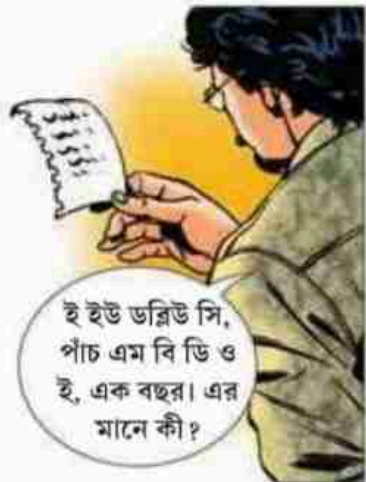 ই ইউ ডব্লিউ সি,
পাঁচ এম বি ডি ও
ই, এক বছর। এর
মানে কী?